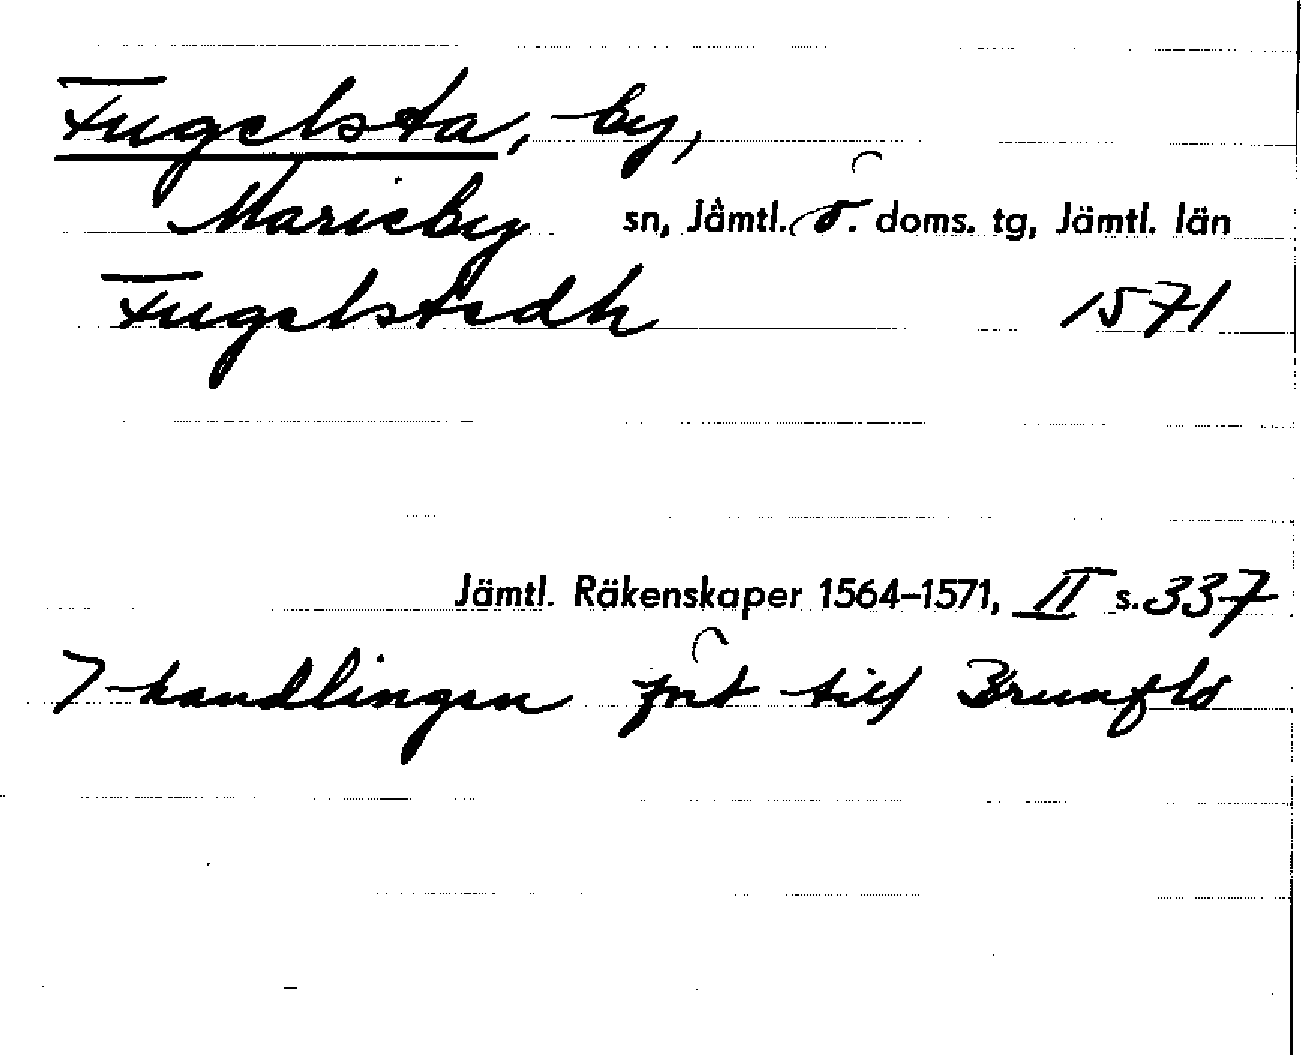 Fugelsta, by,
Marieby sn, Jämtl. ö. doms. tg, Jämtl. län
Fugelstedh 1571
Jämtl. Räkenskaper 1564-1571, II s. 337
I handlingen fört till Brunflo